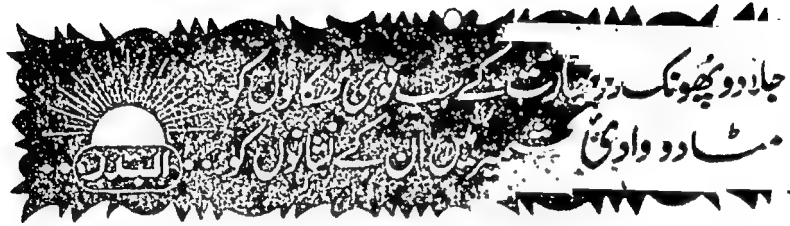 جلادو پُھونک دو بھارت کے سب فوجی ٹھکانوں کو
مٹادو وادیٔ کشمیر میں ان کے نشانوں کو
البدر